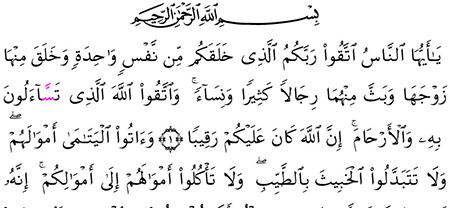 بِسْمِ ٱللَّهِ ٱلرَّحْمَٰنِ ٱلرَّحِيمِ
يَٰأَيُّهَا ٱلنَّاسُ ٱتَّقُوا۟ رَبَّكُمُ ٱلَّذِى خَلَقَكُم مِّن نَّفْسٍ وَٰحِدَةٍ وَخَلَقَ مِنْهَا
زَوْجَهَا وَبَثَّ مِنْهُمَا رِجَالًا كَثِيرًا وَنِسَآءً ۚ وَٱتَّقُوا۟ ٱللَّهَ ٱلَّذِى تَسَّآءَلُونَ
بِهِۦ وَٱلْأَرْحَامَ ۚ إِنَّ ٱللَّهَ كَانَ عَلَيْكُمْ رَقِيبًا ﴿١﴾ وَءَاتُوا۟ ٱلْيَتَٰمَىٰ أَمْوَٰلَهُمْ ۖ
وَلَا تَتَبَدَّلُوا۟ ٱلْخَبِيثَ بِٱلطَّيِّبِ ۖ وَلَا تَأْكُلُوٓا۟ أَمْوَٰلَهُمْ إِلَىٰٓ أَمْوَٰلِكُمْ ۚ إِنَّهُۥ